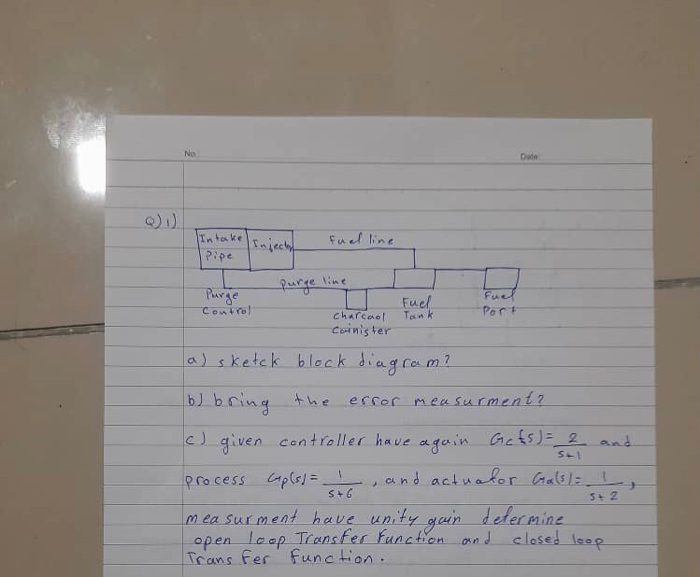 No. Date:
Q)1)
Intake Injector Fuel line
Pipe
purge line
Purge Control
charcaol Cainister
Fuel Tank
Fuel Port
a) sketck block diagram?
b) bring the error measurment?
c) given controller have again Gc(s)= 2/(s+1) and
process Gp(s)= 1/(s+6), and actuator Ga(s)= 1/(s+2),
measurment have unity gain determine
open loop Transfer Function and closed loop
Transfer function.